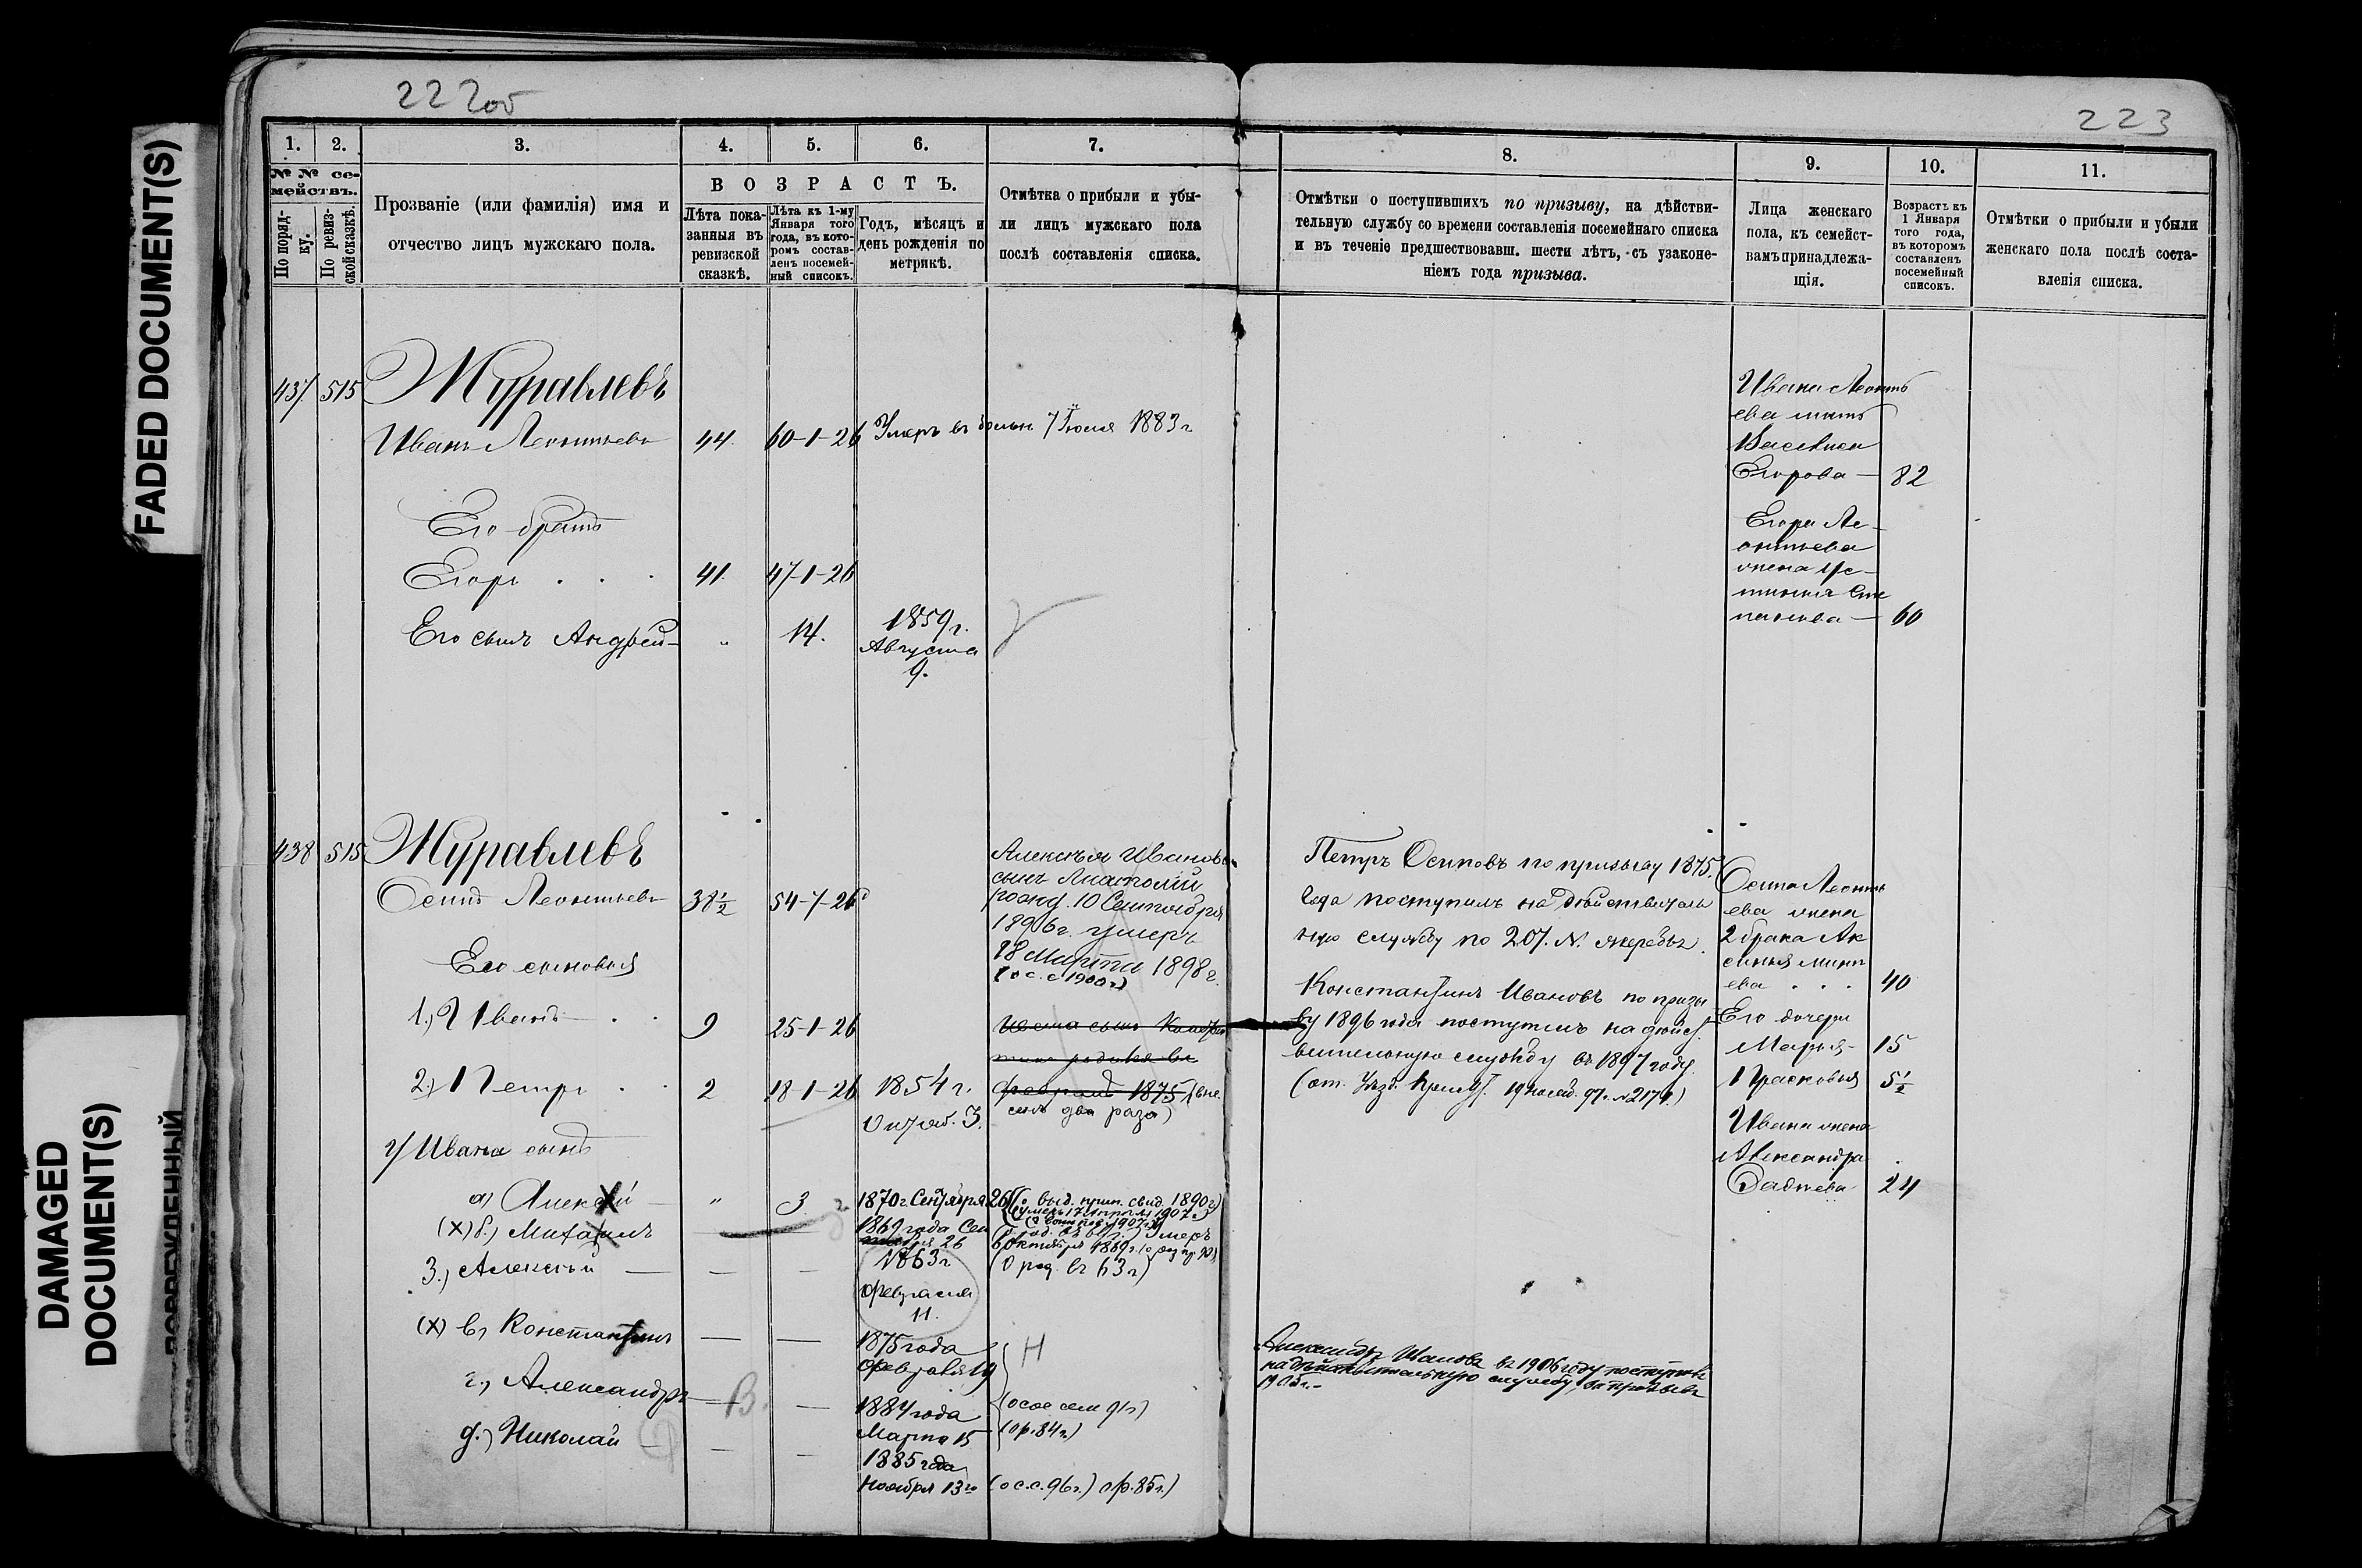 FADED DOCUMENT(S)
DAMAGED
DOCUMENT(S)
222об
223
1.
2.
3.
4.
5.
6.
7.
8.
9.
10.
11.
№ № се-
мействъ.
По поряд-
ку.
По ревиз-
ской сказкѣ.
Прозваніе (или фамилія) имя и
отчество лицъ мужскаго пола.
ВОЗРАСТЪ.
Лѣта пока-
занныя въ
ревизской
сказкѣ.
Лѣта къ 1-му
Января того
года, въ кото-
ромъ состав-
ленъ посемей-
ный списокъ.
Годъ, мѣсяцъ и
день рожденія по
метрикѣ.
Отмѣтка о прибыли и убы-
ли лицъ мужскаго пола
послѣ составленія списка.
Отмѣтки о поступившихъ по призыву, на дѣйстви-
тельную службу со времени составленія посемейнаго списка
и въ теченіе предшествовавш. шести лѣтъ, съ узаконе-
ніемъ года призыва.
Лица женскаго
пола, къ семейст-
вамъ принадлежа-
щія.
Возрастъ къ
1 Января
того года,
въ которомъ
составленъ
посемейный
списокъ.
Отмѣтки о прибыли и убыли
женскаго пола послѣ соста-
вленія списка.
437 515 Журавлевъ
Иванъ Леонтьевъ 44. 60-1-26 Умеръ въ больн 7 Іюля 1883 г
Его братъ
Егоръ . . . 41. 47-1-26
Его сынъ Андрей - „ 14. 1859 г.
Августа
9.
Ивана Леонть
ева мать
Василиса
Егорова — 82
Егора Ле-
онтьева
жена Ус-
тинья Сте
панова — 60
438 515 Журавлевъ
Осипъ Леонтьевъ 38½ 54-7-26
Его сыновья
1.) Иванъ — . . 9 25-1-26
2.) Петръ . . 2 18-1-26 1854 г.
Октяб. 3.
Ивана сынъ
а) Алексѣй — „ 3 1870 г. Сентября 26
(х) б.) Михаилъ 1869 года Сен
тября 26
3.) Алексѣй — — — 1863 г
февраля
11.
(х) в, Константинъ — — 1875 года
февраля 19
г., Александръ — В. — 1884 года
Марта 15
д.) Николай — — — 1885 года
Ноября 13го
Алексѣя Иванова
сынъ Анатолій
рожд. 10 Сентября
1896 г. умеръ
18 Марта 1898 г.
(о с. с 1900 г)
Ивана сынъ Констан
тинъ родился въ
февралѣ 1875 (вне
сенъ два раза)
(умеръ 17 Апрѣля 1907 г.)
Умеръ
(О род. въ 63 г)
Н
(осое сем 91 г)
(о р. 84 г.)
(о с.с. 96 г.) о р. 85 г.)
Петръ Осиповъ по призыву 1875.
Года поступилъ на дѣйствитель
ную службу по 207. №. жеребья.
Константинъ Ивановъ по призы
ву 1896 года поступилъ на дѣйст
вительную службу въ 1897 году
Александръ Ивановъ въ 1906 году поступилъ
на дѣйствительную службу, за призывъ
1905 г. -
Осипа Леонть
ева жена
2 брака Ак
синья Мини
ева . . . 40
Его дочери
Марья - 15
Прасковья 5½
Ивана жена
Александра
Фадѣева 24